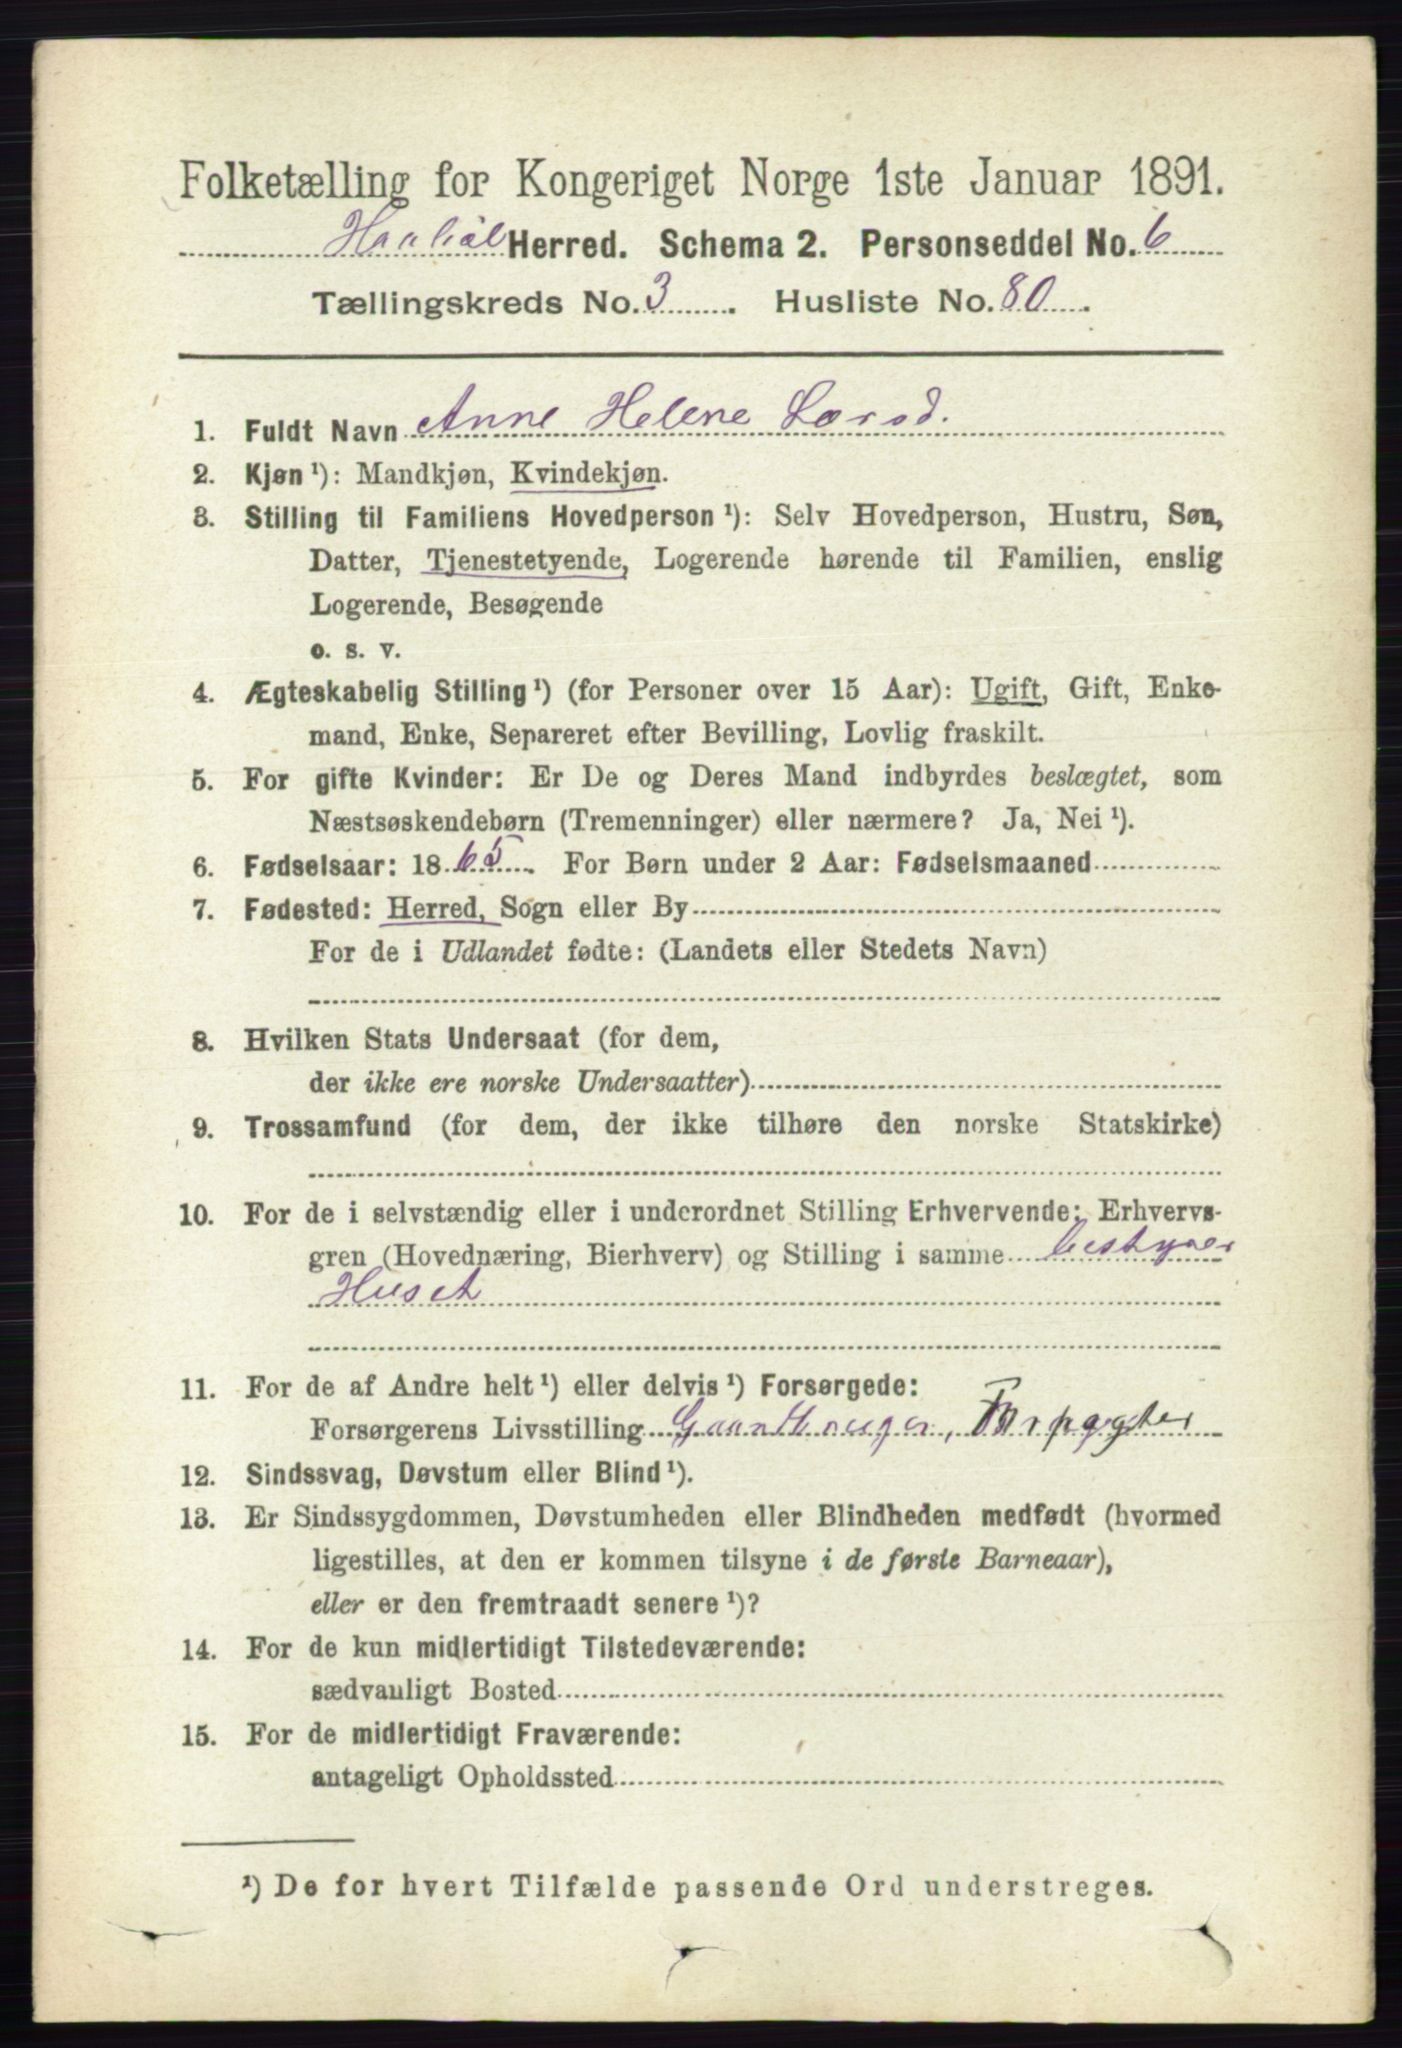 Folketælling for Kongeriget Norge 1ste Januar 1891.
Haabøl Herred. Schema 2. Personseddel No. 6
Tællingskreds No. 3. Husliste No. 80.
1. Fuldt Navn Anne Helene Larsd.
2. Kjøn ¹): Mandkjøn, Kvindekjøn.
3. Stilling til Familiens Hovedperson ¹): Selv Hovedperson, Hustru, Søn,
Datter, Tjenestetyende, Logerende hørende til Familien, enslig
Logerende, Besøgende
o. s. v.
4. Ægteskabelig Stilling ¹) (for Personer over 15 Aar): Ugift, Gift, Enke-
mand, Enke, Separeret efter Bevilling, Lovlig fraskilt.
5. For gifte Kvinder: Er De og Deres Mand indbyrdes beslægtet, som
Næstsøskendebørn (Tremenninger) eller nærmere? Ja, Nei ¹).
6. Fødselsaar: 1865. For Børn under 2 Aar: Fødselsmaaned
7. Fødested: Herred, Sogn eller By
For de i Udlandet fødte: (Landets eller Stedets Navn)
8. Hvilken Stats Undersaat (for dem,
der ikke ere norske Undersaatter)
9. Trossamfund (for dem, der ikke tilhøre den norske Statskirke)
10. For de i selvstændig eller i underordnet Stilling Erhvervende: Erhvervs-
gren (Hovednæring, Bierhverv) og Stilling i samme bestyrer
Huset
11. For de af Andre helt ¹) eller delvis ¹) Forsørgede:
Forsørgerens Livsstilling
12. Sindssvag, Døvstum eller Blind ¹).
13. Er Sindssygdommen, Døvstumheden eller Blindheden medfødt (hvormed
ligestilles, at den er kommen tilsyne i de første Barneaar),
eller er den fremtraadt senere ¹)?
14. For de kun midlertidigt Tilstedeværende:
sædvanligt Bosted
15. For de midlertidigt Fraværende:
antageligt Opholdssted
¹) De for hvert Tilfælde passende Ord understreges.